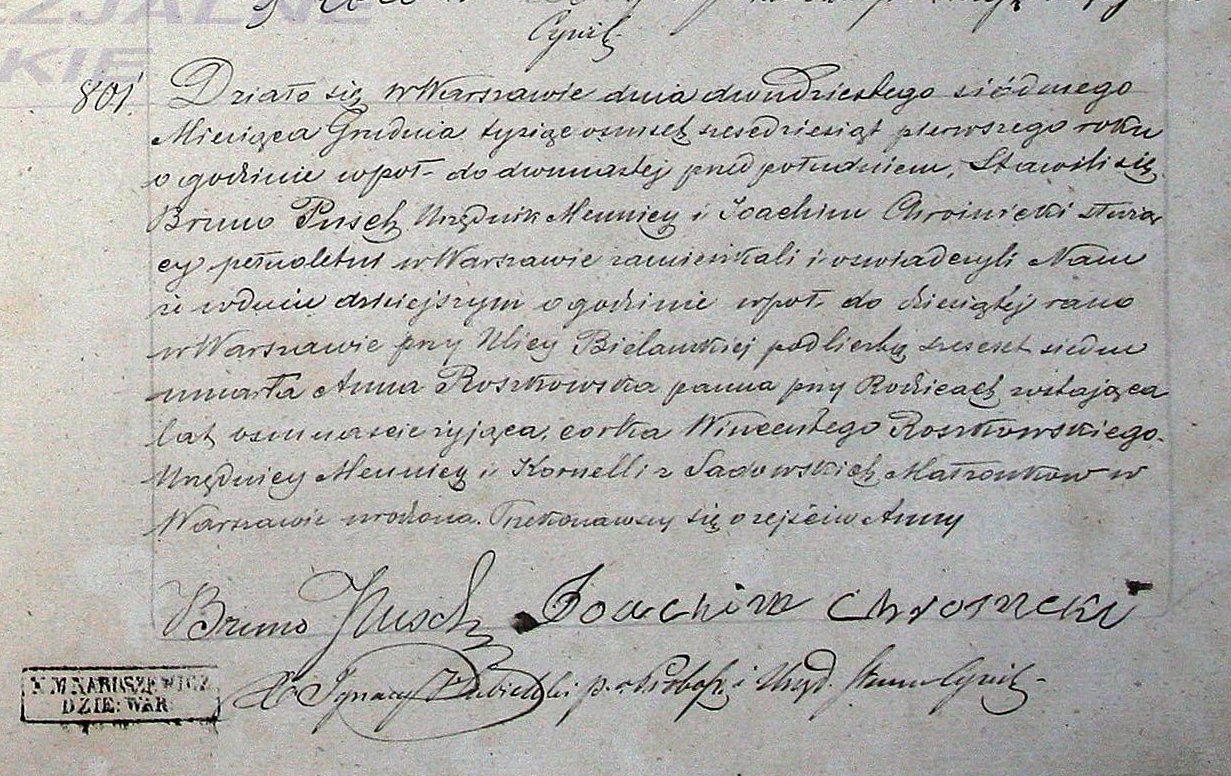 ZJALNE
KIE
Cywil
801. Działo się w Warszawie dnia dwudziestego siódmego
Miesiąca Grudnia tysiąc ośmset sześćdziesiąt pierwszego roku
o godzinie wpół do dwunastej przed południem, Stawili się
Bruno Pusch Urzędnik Mennicy i Joachim Chroinicki służą-
cy pełnoletni w Warszawie zamieszkali i oświadczyli Nam
że w dniu dzisiejszym o godzinie wpół do dziesiątej rano
w Warszawie przy Ulicy Bielańskiej pod liczbą sześćset siedm
umarła Anna Roszkowska panna przy Rodzicach zostająca
lat osmnaście żyjąca, córka Wincentego Roszkowskiego
Urzędnicy Mennicy i Kornelli z Sadowskich Małżonków w
Warszawie urodzona. Przekonawszy się o zejściu Anny
Bruno Pusch Joachim Chrosnicki
X Ignacy i Urzęd. Stanu Cywil
X M NARUSZEWICZ
DZIE: WAR